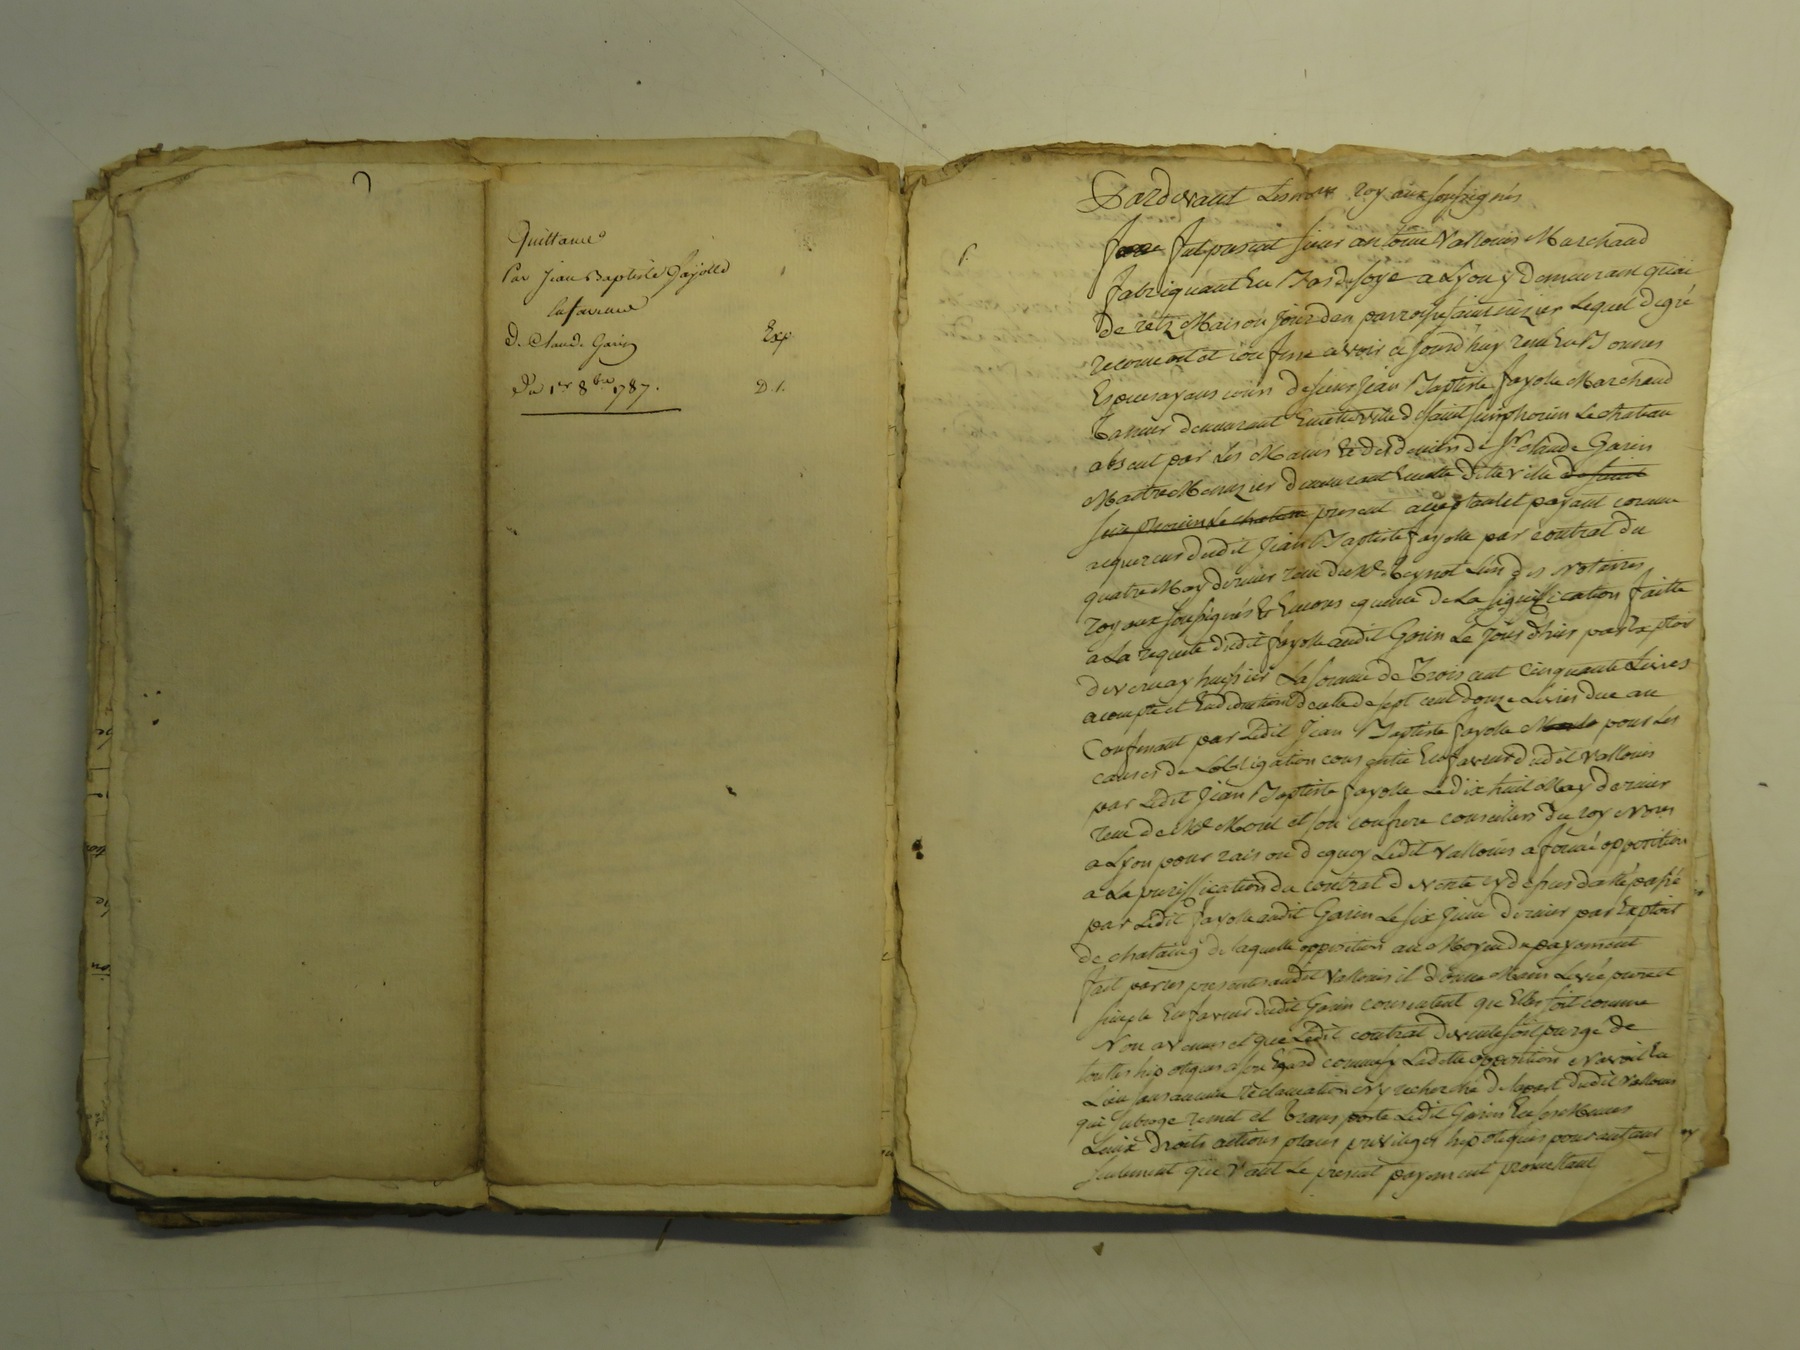 Quittance
Par Jean Baptiste Fayolle
En faveur
D. Claud. Garin
Exp
Du 1er 8bre 1787.
D 1.
Pardevant Les nores royaux soussignés
fut present sieur antoine Vallouis Marchand
fabriquant En Bas de soye a Lyon y demeurant quai
de retz Maison Jourdan parroisse saint nizier Lequel de gré
reconnoit et confesse avoir ce jourd'huy recu En Bonnes
Especes ayans cours de sieur Jean Baptiste fayolle Marchand
Tanneur demeurant En cette ville de saint simphorien Le chateau
absent par Les Mains Et des deniers de Sr Claude Garin
Maitre Menuzier demeurant En cette ditte ville de saint
simphorien Le chateau present acceptant et payant comme
acquereur dudit Jean Baptiste fayolle par contrat du
quatre May dernier recu du Me Reynot L'un des Notaires
royaux soussignés Et En consequence de La signiffication faitte
a La requete dudit fayolle audit Garin Le jour d'hier par Exploit
de vernay huissier La somme de Trois cent Cinquante Livres
acompte et En deduction de celle de sept cent douze Livres due au
Confessant par Ledit Jean Baptiste fayolle pour Les
causes de Lobligation consentie En faveur dudit Vallouis
par Ledit Jean Baptiste fayolle Le dix huit May dernier
recu de Me Morel et son confrere conseillers du roy Nores
a Lyon pour raison de quoy Ledit Vallouis a formé opposition
a La puriffication du contrat de vente cy dessus datté passé
par Ledit fayolle audit Garin Le six Juin dernier par Exploit
de chataing de laquelle opposition au Moyen du payement
fait par ces presentes audit Vallouis il donne Main Levée pure et
simple En faveur dudit Garin consentant qu'Elle soit comme
Non avenue et que Ledit contrat de vente soit purgé de
toutes hipoteques a son Egard comme sy Laditte opposition N'avoit Eu
Lieu sans aucune reclamation Ny recherche de La part dudit Vallouis
qui subroge remet et transporte Ledit Garin En ses Memes
Lieux droits actions places privileges hipoteques pour autant
seulement que vaut Le present payement promettant